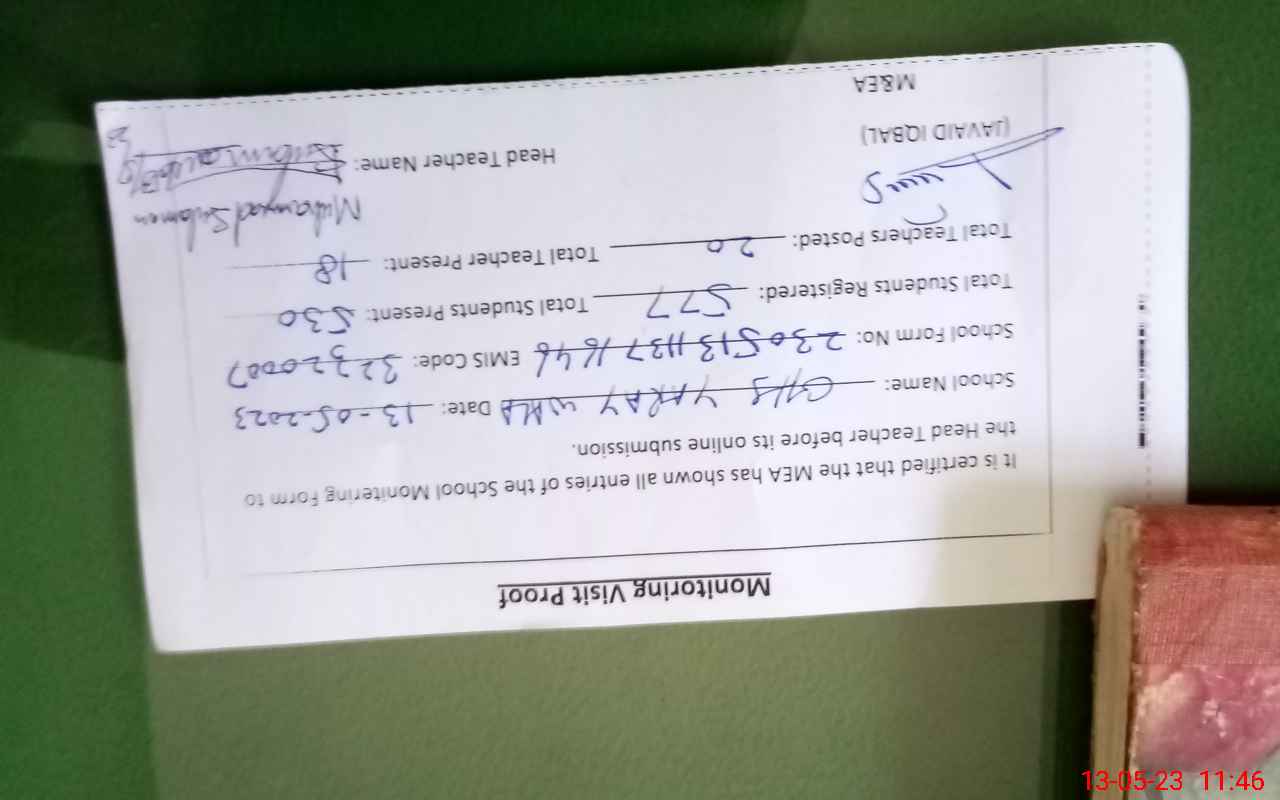 Monitoring Visit Proof
It is certified that the MEA has shown all entries of the School Monitering Form to
the Head Teacher before its online submission.
School Name: GHS YARAY WALA Date: 13-05-2023
School Form No: 23051311371646 EMIS Code: 32320007
Total Students Registered: 577 Total Students Present: 530
Total Teachers Posted: 20 Total Teacher Present: 18
Muhammad Sulaman
Head Teacher Name:
(JAVAID IQBAL)
M&EA
13-05-23 11:46